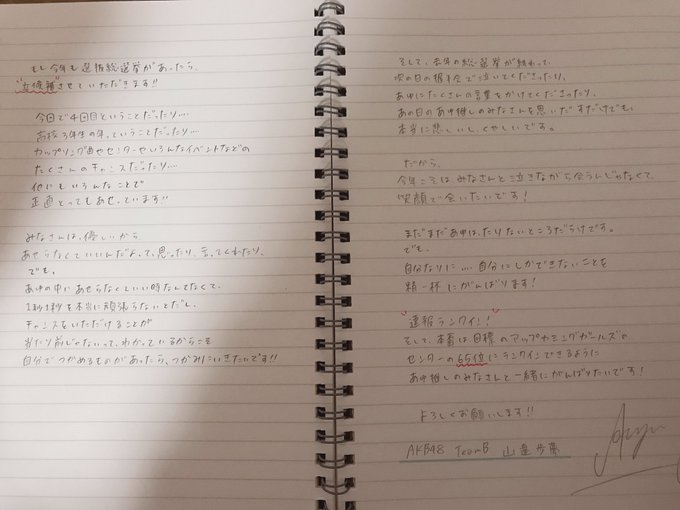 もし今年も選抜総選挙があったら、
"立候補"させていただきます!!
今回で4回目ということだったり…
高校3年生の年、ということだったり…
カップリング曲やセンターやいろんなイベントなどの
たくさんのチャンスだったり…
他にもいろんなことで
正直とってもあせっています!!
みなさんは、優しいから
あせらなくていいんだよって、思ったり、言ってくれたり、
でも。
あゆの中にあせらなくていい時なんてなくて、
1秒1秒を本当に頑張らないとだし、
チャンスをいただけることが
当たり前じゃないって、わかっているからこそ
自分でつかめるものがあったら、つかみにいきたいです!!
そして、去年の総選挙が終わって、
次の日の握手会で泣いてくださったり、
あゆにたくさんの言葉をかけてくださったり、
あの日のあゆ推しのみなさんを思いだすだけでも、
本当に悲しいし、くやしいです。
だから、
今年こそはみなさんと泣きながら会うんじゃなくて、
笑顔で会いたいです!
まだまだあゆは、たりないところだらけです。
でも、
自分なりに…自分にしかできないことを
精一杯にがんばります!
"速報ランクイン!"
そして、本番は目標のアップカミングガールズの
センターの65位にランクインできるように
あゆ推しのみなさんと一緒にがんばりたいです!
よろしくお願いします!!
AKB48 TeamB 山邊歩夢